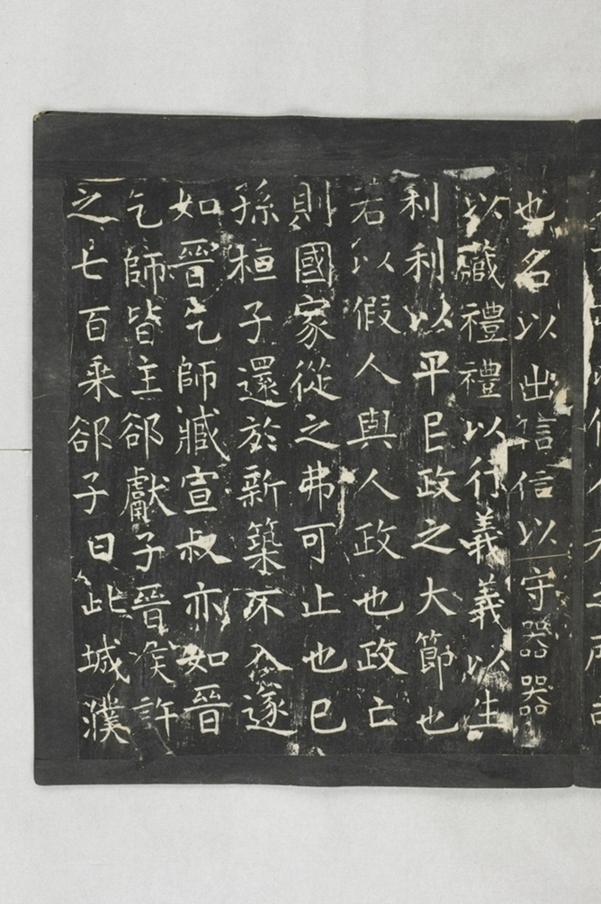 也名以出信信以守器器
以藏禮禮以行義義以生
利利以平民政之大節也
若以假人與人政也政亡
則國家從之弗可止也已
孫桓子還於新築不入遂
如晉乞師臧宣叔亦如晉
乞師皆主郤獻子晉侯許
之七百乘郤子曰此城濮